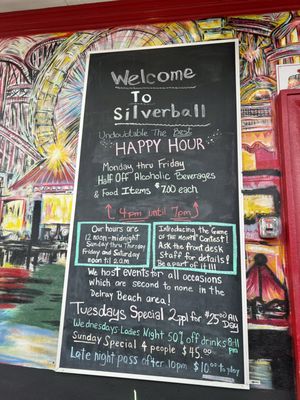 Welcome
To
Silverball
Undoubtable The Best
HAPPY HOUR
Monday thru Friday
Half OFF Alcoholic Beverages
& Food Items $7.00 each
4pm until 7pm
Our hours are
12 noon-midnight
Sunday thru Thursday
Friday and Saturday
noon til 2 a.m
Introducing the Game
of the month Contest!
Ask the front desk
Staff for details!
Be a part of it!!!
We host events for all occasions
which are second to none in the
Delray Beach area!
Tuesdays Special 2ppl for $25.00 All Day
Wednesdays Ladies Night 50% off drinks 8-11 pm
Sunday Special 4 people $45.00
Late night pass after 10pm $10.00 to play